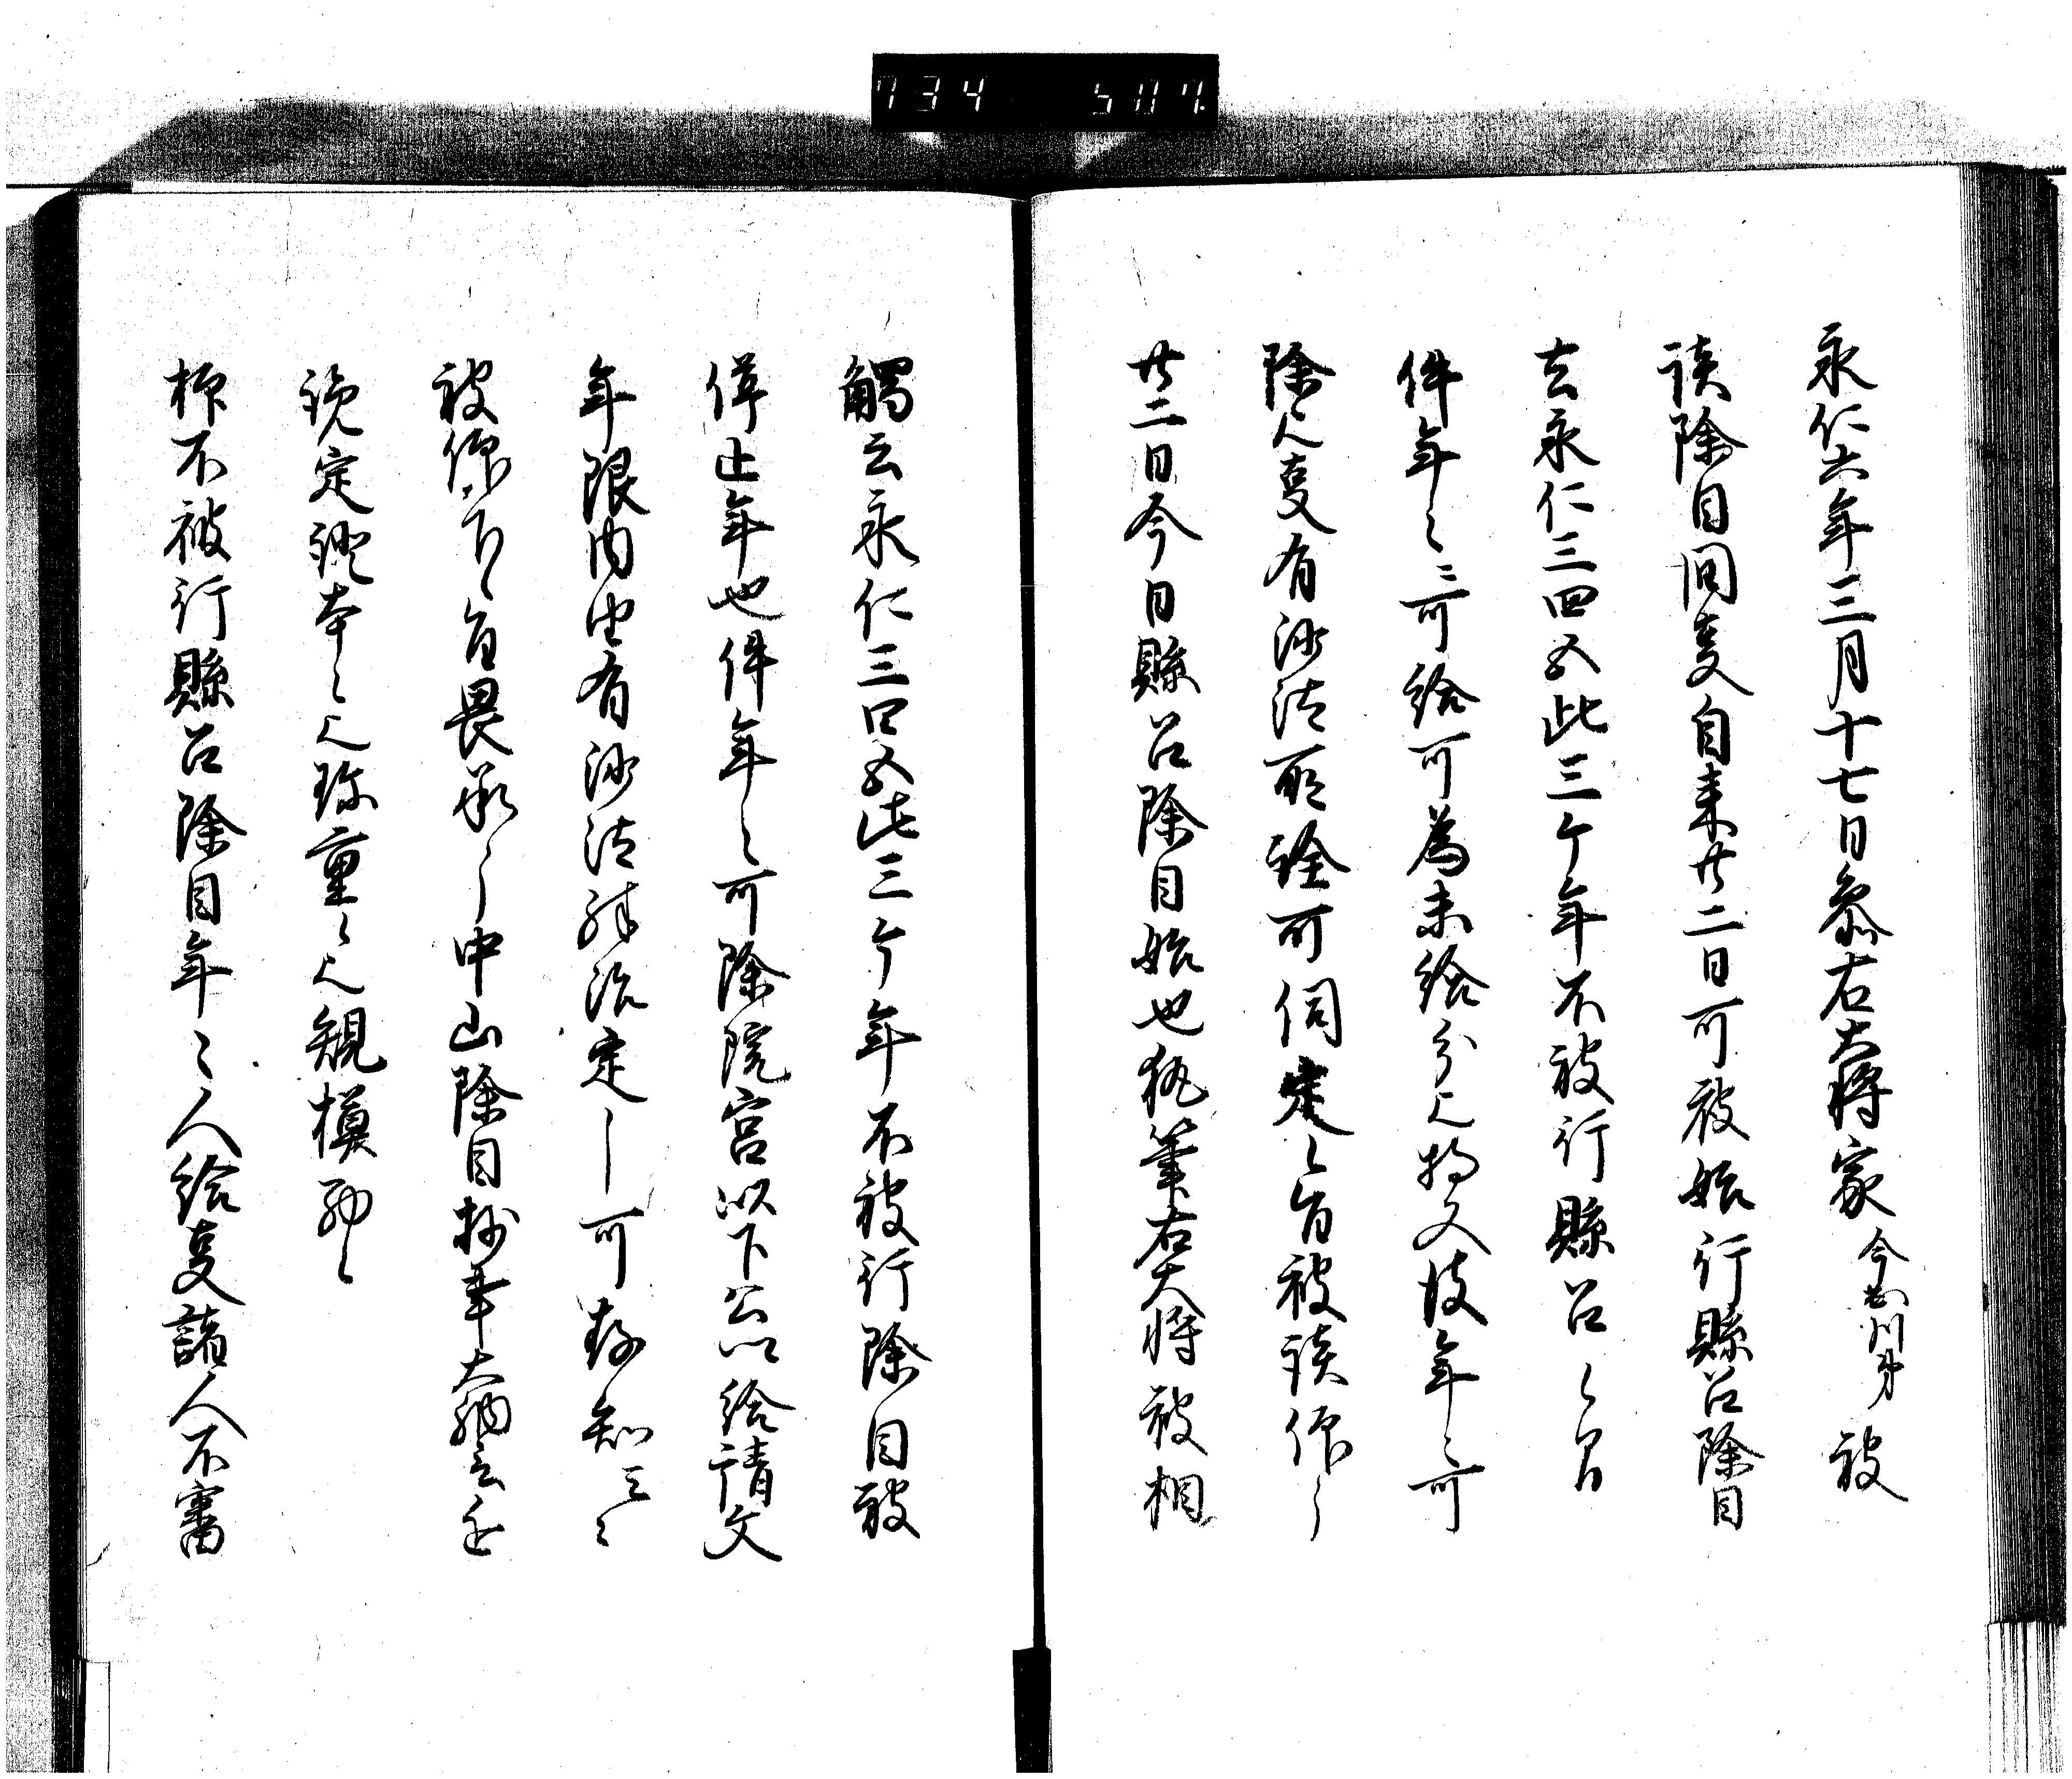 734 507
永仁六年三月十七日參右大將家 今出川第 被
談除目間事自來廿二日可被始行縣召除目
去永仁三四五此三ケ年不被行縣召之間
件年々可給可為未給分之物又彼年々可
除之事有沙汰所詮可伺定之旨被談仰之
廿二日今日縣召除目始也執筆右大將被相
觸云永仁三四五此三ケ年不被行除目被
停止年也件年々可除院宮以下公卿給請文
年限内由有沙汰治定之可存知云々
被仰下之旨畏承之中山除目抄華大納言
說定證本之之珍重之之規模歟
抑不被行縣召除目年々人給事諸人不審